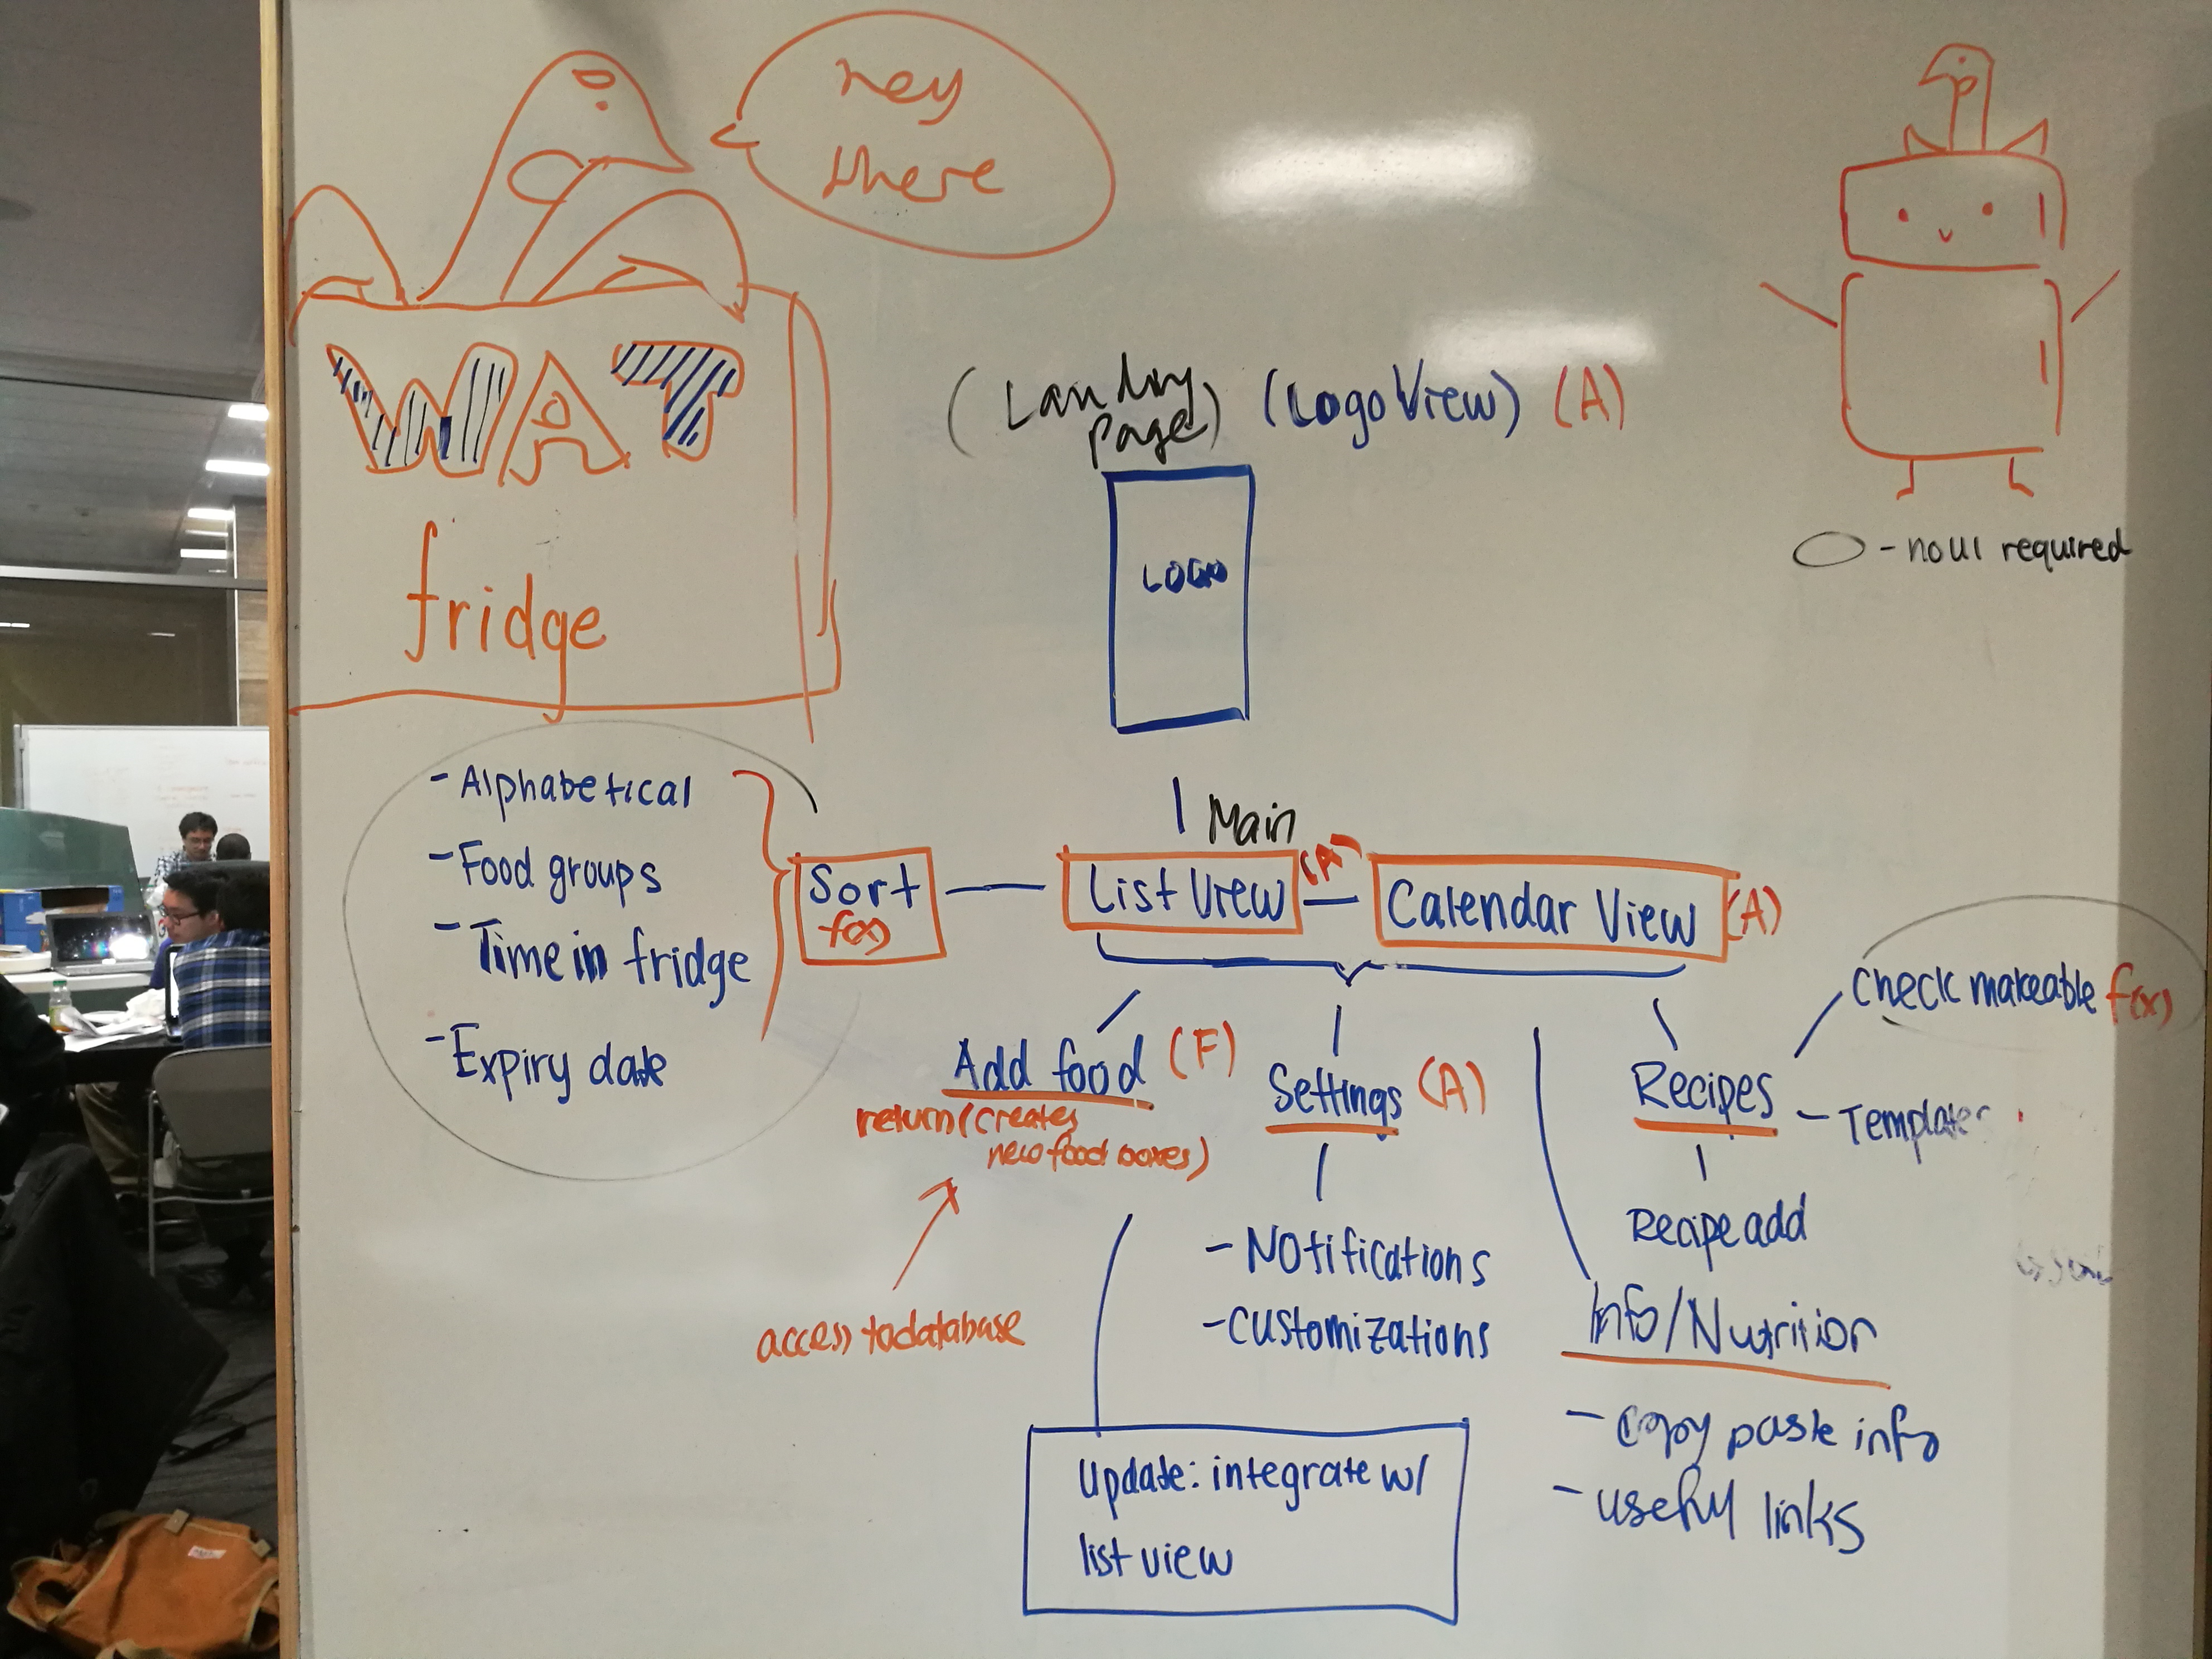 hey
there
WAT
fridge
(Landing
Page) (Logo View) (A)
LOGO
- no UI required
Main
- Alphabetical
- Food groups
- Time in fridge
- Expiry date
Sort
f(x)
List View (A)
Calendar View (A)
Add food (F)
return(creates
new food boxes)
access to database
Update: integrate w/
list view
Settings (A)
- Notifications
- Customizations
check makeable f(x)
Recipes
- Templates
Recipe add
Info/Nutrition
- Copy paste info
- useful links